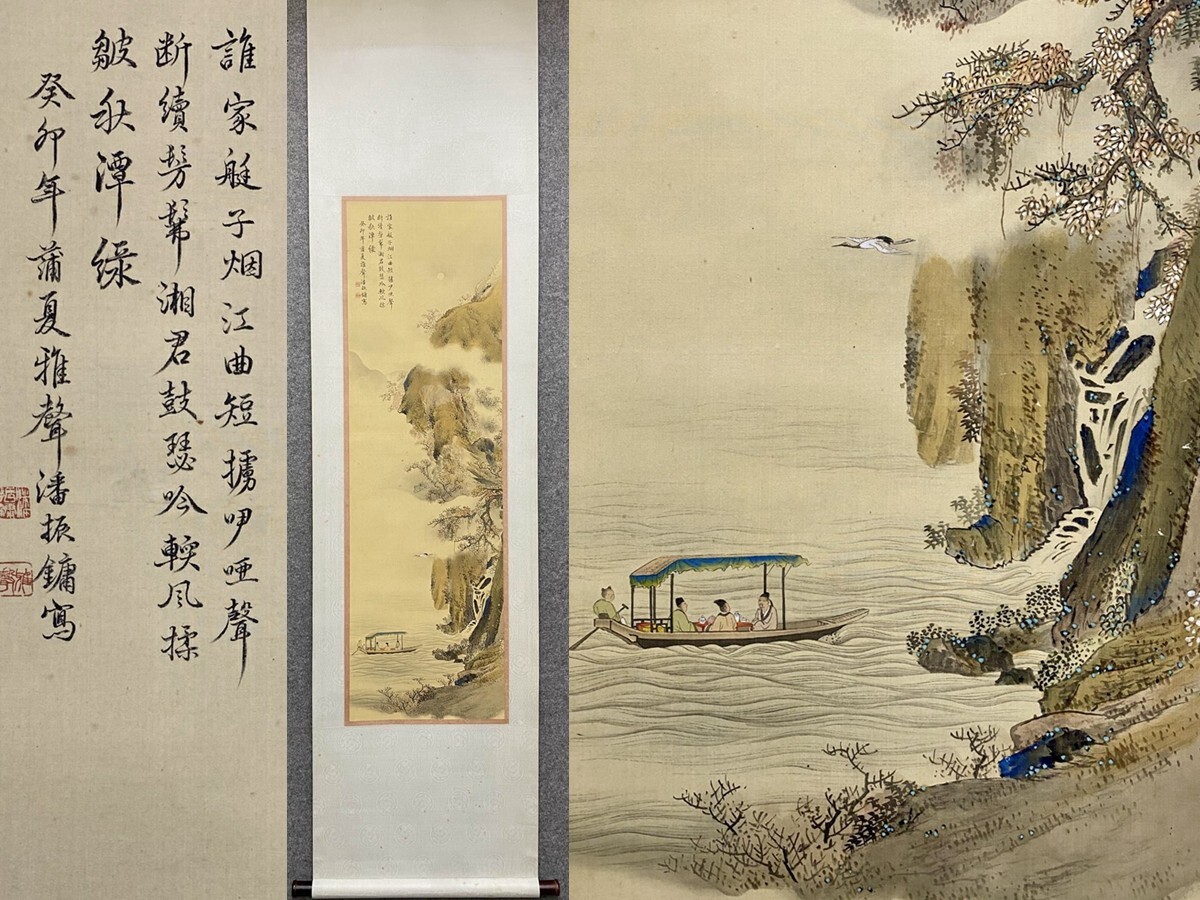 誰家艇子烟江曲短擄吚唖聲
断續髣髴湘君鼓瑟吟輭风揉
皺秋潭緑
癸卯年蒲夏雅聲潘振鏞寫